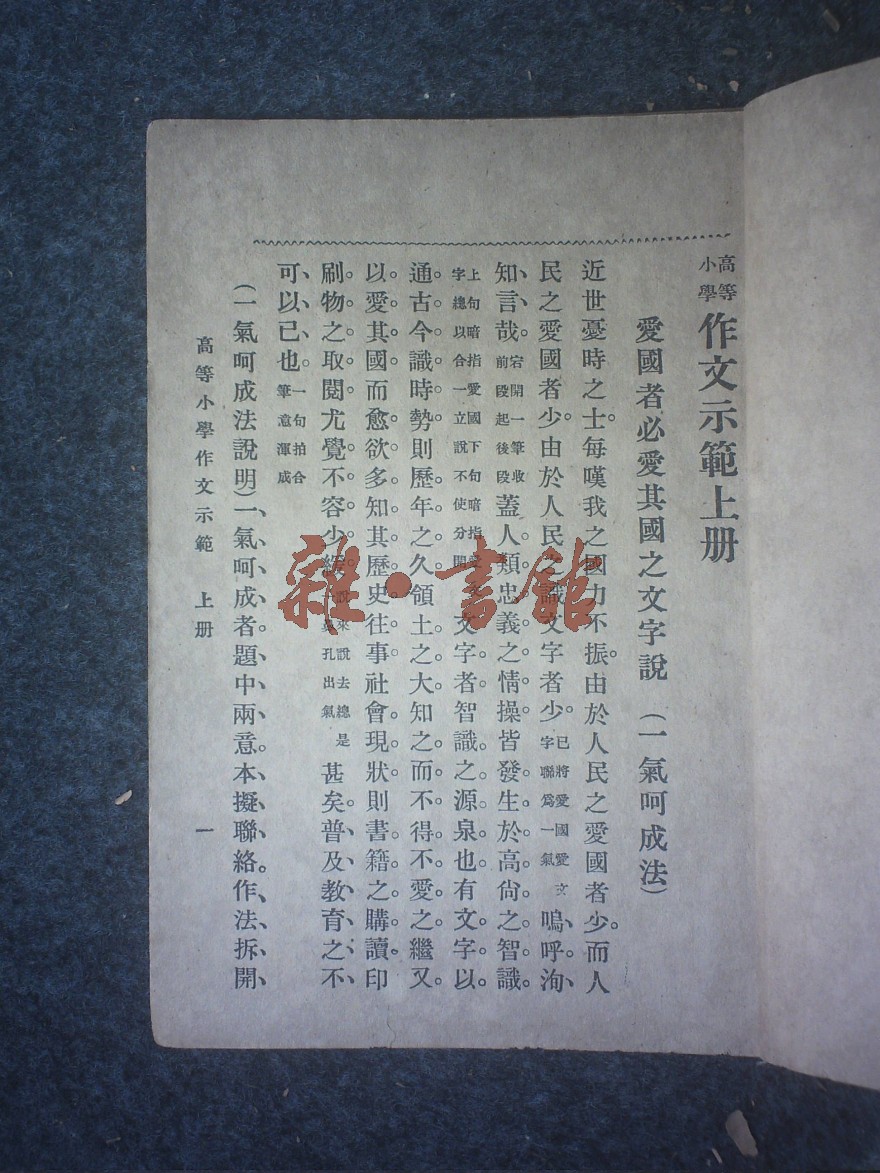 高等小學作文示範上册
愛國者必愛其國之文字說（一氣呵成法）
近世憂時之士。每嘆我之國力不振由於人民之愛國者少。而人
民之愛國者少。由於人民之識文字者少。已將愛國愛文字聯爲一氣嗚、呼。洵、
知、言、哉。宕開一筆收前段起後段蓋人類忠義之情操皆發生於高尙之智識。
上句暗指愛國下句暗指愛文字總以合一立說不使分開文字者智識之源泉也有文字以
通古今識時勢則歷年之久領土之大知之而不得不愛之繼又
以愛其國而愈欲多知其歷史往事社會現狀則書籍之購讀印
刷物之取閱尤覺不容少緩。說來說去總是孔出氣甚矣。普、及、教、育、之、不、
可、以、已、也。一句拍合筆意渾成
（一氣呵成法說明）一、氣、呵、成、者、題、中、兩、意。本、擬、聯、絡。作、法、拆、開、
高等小學作文示範 上册 一
雜·書館